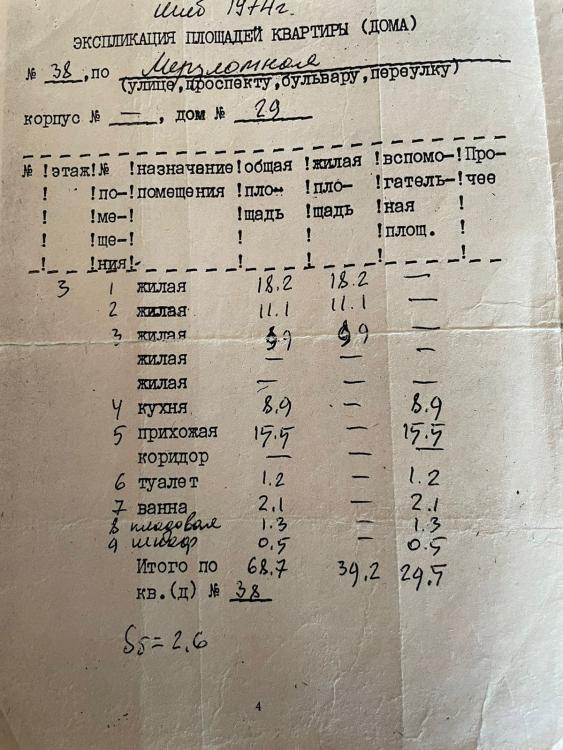 1974г.
ЭКСПЛИКАЦИЯ ПЛОЩАДЕЙ КВАРТИРЫ (ДОМА)
№ 38, по Мерзлотная
(улице, проспекту, бульвару, переулку)
корпус № —, дом № 29
№ !этаж!№ !назначение!общая !жилая !вспомо-!Про-
! !по-!помещения !пло- !пло- !гатель-!чее
! !ме-! !щадь !щадь !ная !
! !ще-! ! ! !площ. !
! !ния! ! ! ! !
3 1 жилая 18.2 18.2 —
2 жилая 11.1 11.1 —
3 жилая 9.9 9.9 —
жилая — — —
жилая — — —
4 кухня 8.9 — 8.9
5 прихожая 15.5 — 15.5
коридор — —
6 туалет 1.2 — 1.2
7 ванна 2.1 — 2.1
8 кладовая 1.3 — 1.3
9 шкаф 0.5 — 0.5
Итого по 68.7 39.2 29.5
кв.(д) № 38
Sб = 2.6
4